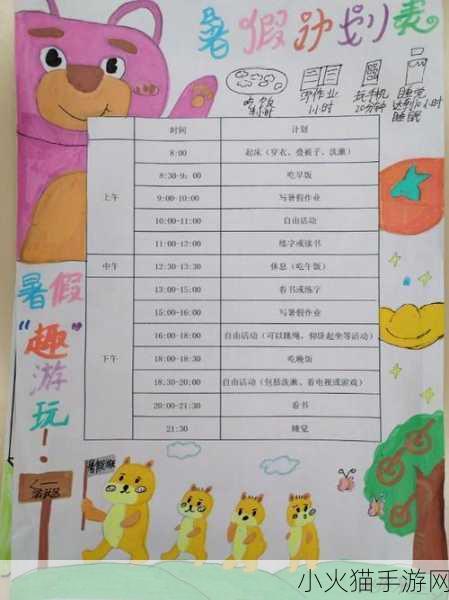 暑假计划表
吃饭
半小时
写作业
1小时
玩手机
20分钟
睡觉
达到10小时
睡眠
时间 计划
上午
8:00 起床（穿衣、叠被子、洗漱）
8:30-9：00 吃早饭
9:00-10:00 写暑假作业
10:00-11:00 自由活动
11:00-12:00 练字或读书
中午
12:30-13:30 休息（吃午饭）
下午
13:00-15:00 看书或练字
15:00-16:00 写暑假作业
16:00-18:00 自由活动（可以跳绳、仰卧起坐等活动）
18:00-18:30 吃晚饭
18.30-20:00 自由活动（包括洗漱、看电视或游戏）
20:00-21:30 看书
21:30 睡觉
暑假
“趣”
游玩
！
小火猫手游网